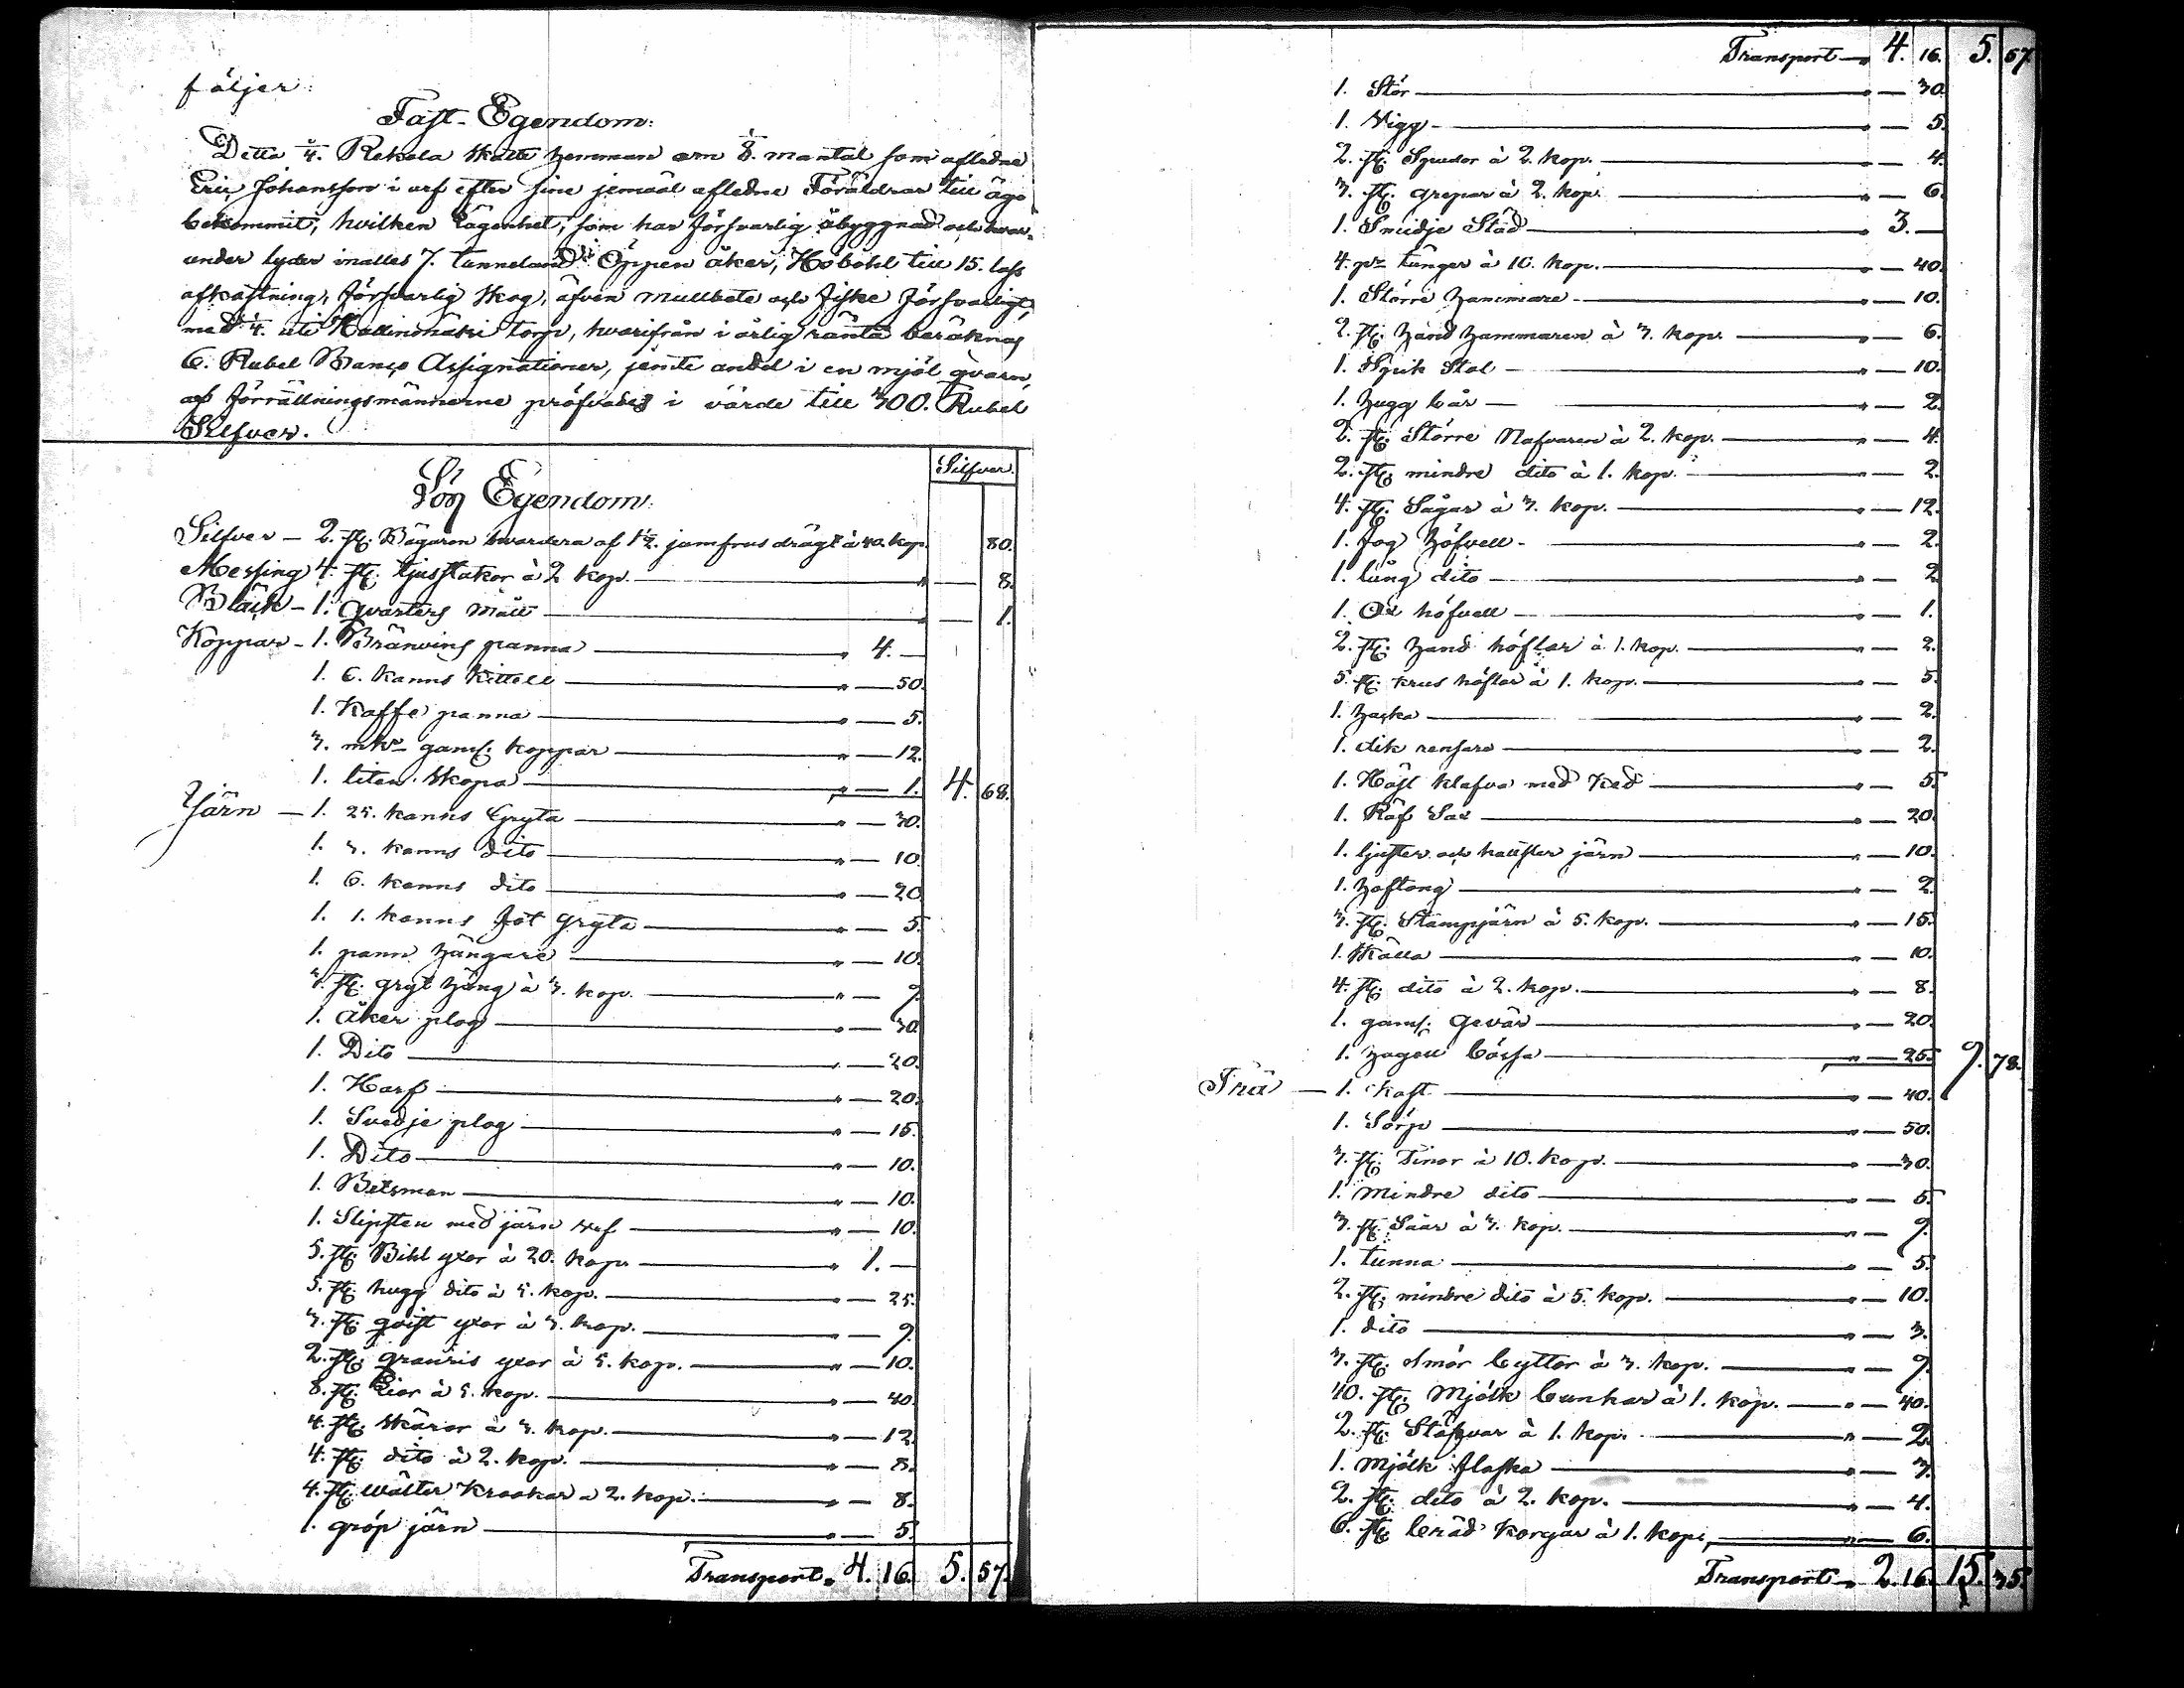 följer:
Fast-Egendom:
Detta 1/4. Rekola Skatte hemman om 1/8. mantal som aflidne
Eric Johansson i arf efter sine jemväl aflidne Föräldrar till ägo
bekommit, hvilken Lägenhet, som har försvarlig åbyggnad och hvar-
under lyder inalles 7. tunneland Öppen åker, Höbohl till 15. lass
afkastning, försvarlig skog, äfven mulbete och fiske försvarligt,
med 1/4. uti torp, hvarifrån i årlig ränta beräknas
6. Rubel Banco Assignationer, jemte andel i en mjöl qvarn,
af förrättningsmännerne pröfvades i värde till 300. Rubel
Silfver.
Silfver.
Lös Egendom:
Silfver – 2. st. Bägaren hvardera af 1 1/2. jomfrus drägt à 40. kop. 80.
Messing 4. st. ljusstakor à 2 kop. " — 8.
Bläck – 1. qvarters mått " — 1.
Koppar – 1. Bränvins panna " 4. —
1. 6. kanns kittell " — 50.
1. Kaffe panna " — 5.
3. mkr gamf. koppar " — 12.
1. liten skopa " — 1. 4. 68.
Järn – 1. 25. kanns Gryta " — 30.
1. 3. kanns dito " — 10.
1. 6. kanns dito " — 20.
1. 1. kanns fot gryta " — 5.
1. pann hängare " — 10.
3. st. gryt häng à 3. kop. " — 9.
1. Åker plog " — 30.
1. Dito " — 20.
1. Harf " — 20.
1. Svedje plog " — 15.
1. Dito " — 10.
1. Betsman " — 10.
1. Slipsten med järn " — 10.
5. st. Bihl yxor à 20. kop. " 1. —
5. st. hugg dito à 5. kop. " — 25.
3. st. qvist yxor à 3. kop. " — 9.
2. st. granris yxor à 5. kop. " — 10.
8. st. Liar à 5. kop. " — 40.
4. st. skäror à 3. kop. " — 12.
4. st. dito à 2. kop. " — 8.
4. st. wälter krokar a 2. kop. " — 8.
1. gröp järn " — 5.
Transport " 4. 16. 5. 57.
Transport " 4. 16. 5. 57.
1. Stör " — 30.
1. Vigg " — 5.
2. st. Spador à 2. kop. " — 4.
3. st. grepar à 2. kop. " — 6.
1. Smidje Städ " 3. —
4. pr tänger à 10. kop. " — 40.
1. Större hammare " — 10.
2. st. hand hammaren à 3. kop. " — 6.
1. Spik Stal " — 10.
1. hugg bår " — 2.
2. st. Större Nafvaren à 2. kop. " — 4.
2. st. mindre dito à 1. kop. " — 2.
4. st. Sågar à 3. kop. " — 12.
1. fog höfvell " — 2.
1. lång dito " — 2.
1. Ox höfvell " — 1.
2. st. hand höflar à 1. kop. " — 2.
5. st. krus höflar à 1. kop. " — 5.
1. hacka " — 2.
1. dik rensare " — 2.
1. Häst klafva med ked " — 5.
1. Räf Sax " — 20.
1. ljuster och halfster järn " — 10.
1. hoftång " — 2.
3. st. Stampjärn à 5. kop. " — 15.
1. skälla " — 10.
4. st. dito à 2. kop. " — 8.
1. gamf. Gevär " — 20.
1. hagell bössa " — 25. 9. 78.
Trä – 1. kast " — 40.
1. Sörp " — 50.
3. st. Tinor à 10. kop. " — 30.
1. mindre dito " — 5.
3. st. Såar à 3. kop. " — 9.
1. tunna " — 5.
2. st. mindre dito à 5. kop. " — 10.
1. dito " — 3.
3. st. smör byttor à 3. kop. " — 9.
40. st. Mjölk bunkar à 1. kop. " — 40.
2. st. Stäfvar à 1. kop. " — 2.
1. mjölk flaska " — 3.
2. st. dito à 2. kop. " — 4.
6. st. bräd korgar à 1. kop. " — 6.
Transport " 2. 16. 15. 35.